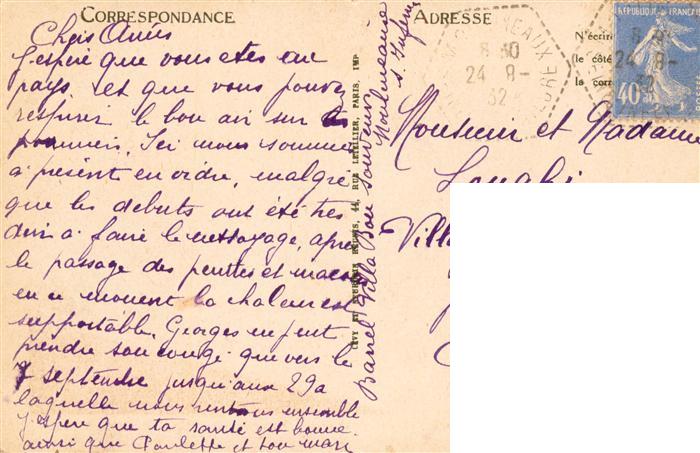 CORRESPONDANCE
Chers Amis
J'espère que vous etes au
pays. et que vous pouvez
respirer le bon air sur les
pommiers. Ici nous sommes
a présent en ordre, malgré
que les debuts ont été très
durs a faire le nettoyage, après
le passage des peintres et macons
en ce moment la chaleur est
supportable. Georges ne peut
prendre son congé que vers le
7 septembre jusqu'aux 29 a
laquelle nous rentrons ensemble
J'espere que ta santé est bonne
ainsi que Paulette et son mari
LEVY ET NEURDEIN RÉUNIS, 44, RUE LETELLIER, PARIS, IMP
Barrel Villa Bon souvenir
Moulineaux
s. Inferieure
ADRESSE
N'écrire
le côté
la corr
8 30
24 8-
32
RÉPUBLIQUE FRANÇAISE
40c
24 8-
32
Monsieur et Madame
Longhi
Villa